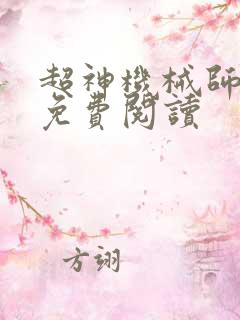 超神機械師
免費閱讀
方翊